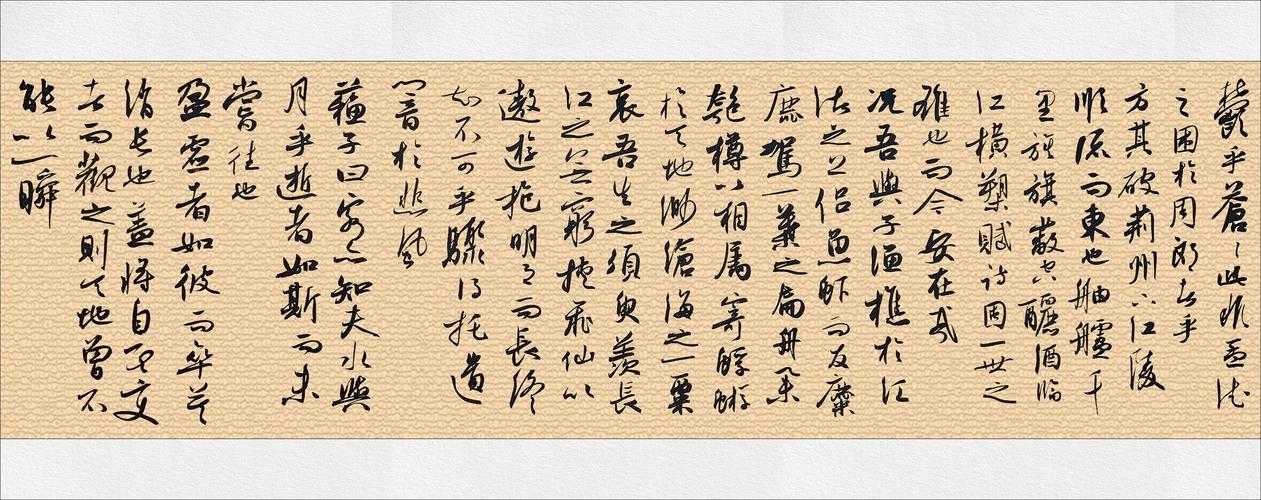 鬱乎蒼〻此非孟德
之困於周郎者乎
方其破荊州下江陵
順流而東也舳艫千
里旌旗蔽空釃酒臨
江橫槊賦詩固一世之
雄也而今安在哉
況吾與子漁樵於江
渚之上侶魚蝦而友麋
鹿駕一葉之扁舟舉
匏樽以相屬寄蜉蝣
於天地渺滄海之一粟
哀吾生之須臾羨長
江之無窮挾飛仙以
遨遊抱明月而長終
知不可乎驟得托遺
響於悲風
蘇子曰客亦知夫水與
月乎逝者如斯而未
嘗往也
盈虛者如彼而卒莫
消長也蓋將自其變
者而觀之則天地曾不
能以一瞬